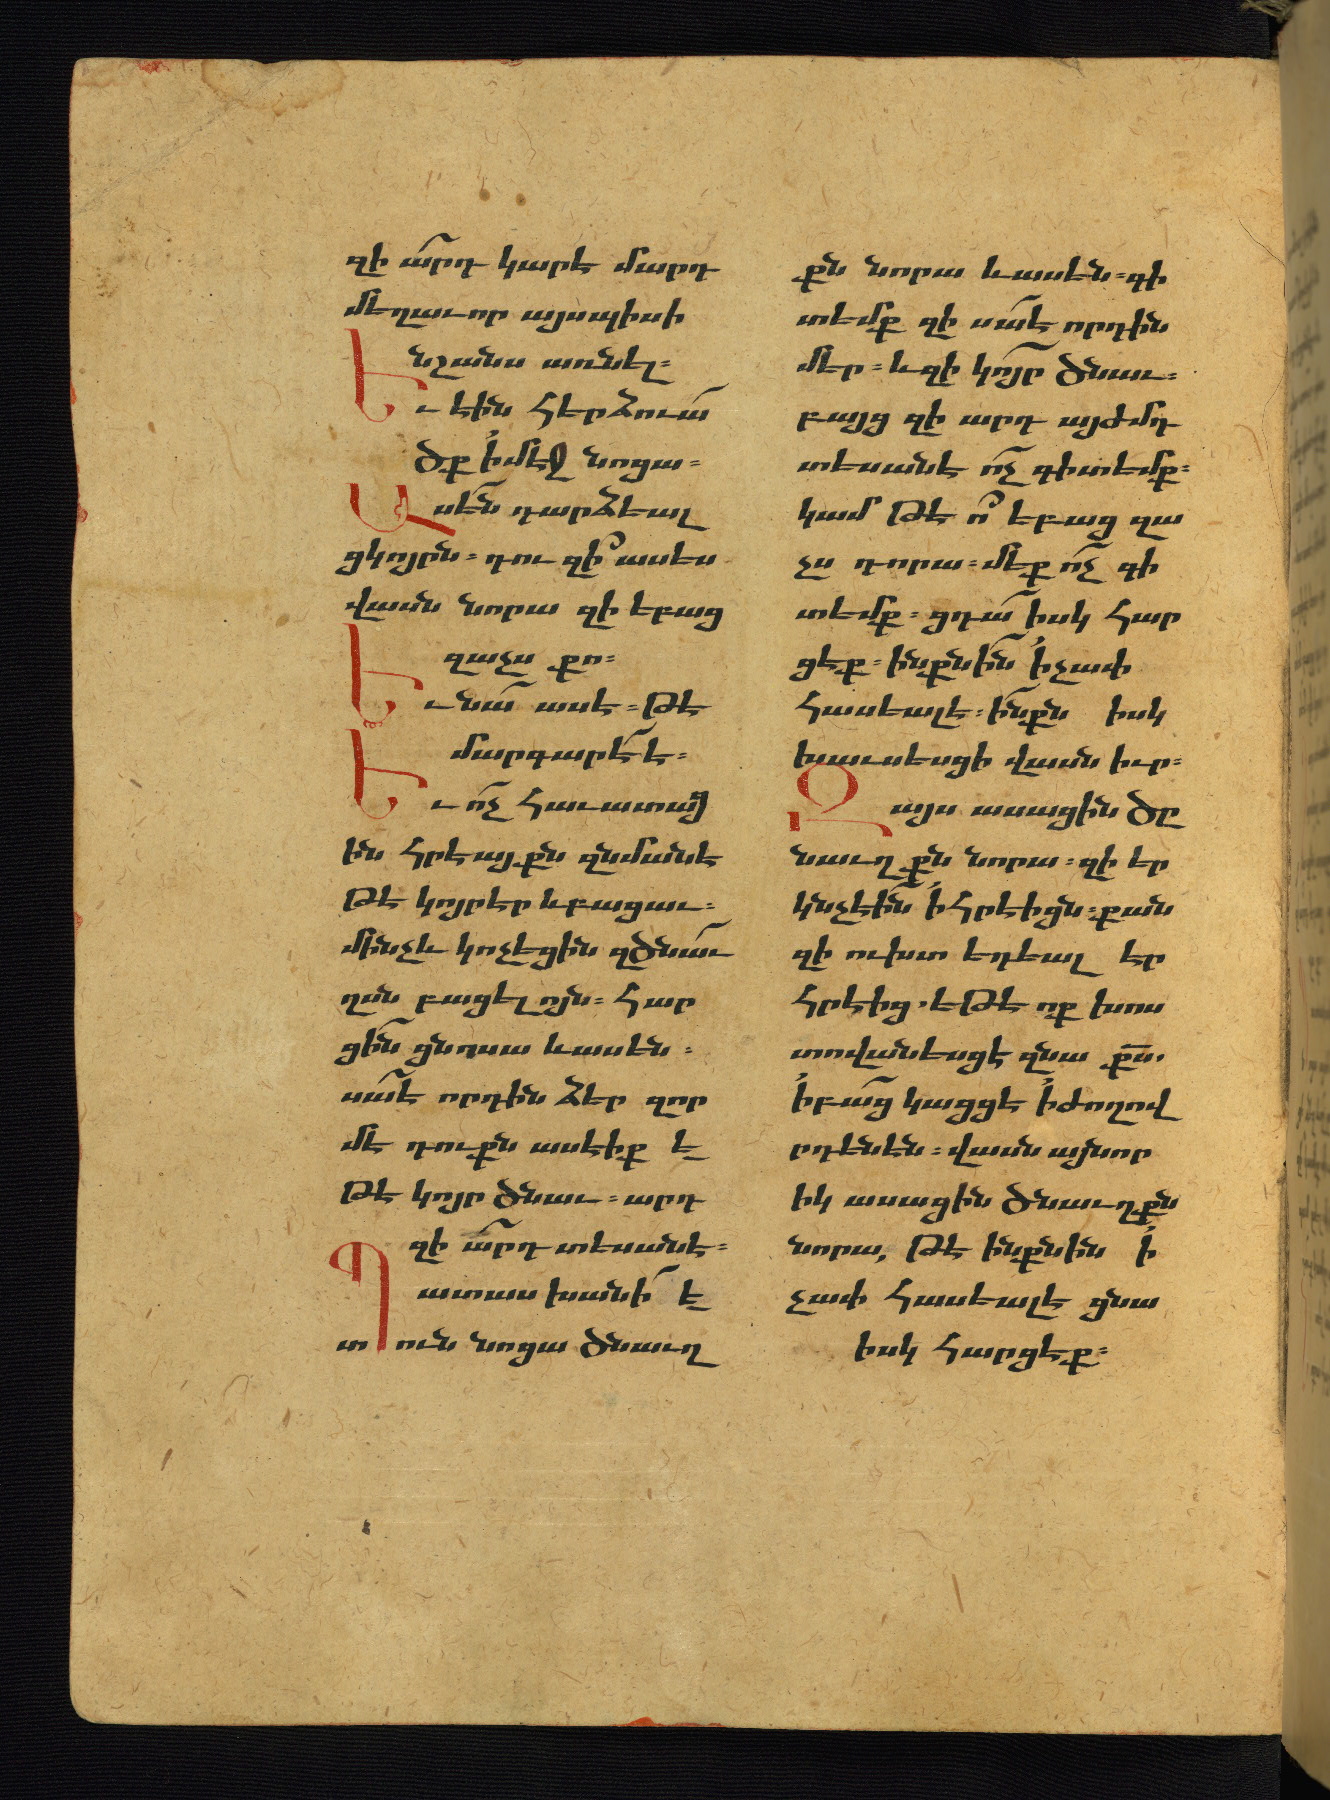 զի ա՞րդ կարէ մարդ
մեղաւոր այսպիսի
նշանս առնել։
Եւ էին հերձուա՜
ծք ի՛մէջ նոցա։
Ասե՜ն դարձեալ
ցկոյրն։ դու զի՞ ասես
վասն նորա զի եբաց
զաչս քո։
Եւ նա՜ ասէ։ թէ
մարգարէ՜ է։
Եւ ո՜չ հաւատայ
ին հրեայքն զնմանէ
թէ կոյր էր և բացաւ։
մինչև կոչեցին զծնա՜ւ
ղսն բացելոյն։ հար
ցի՜ն ցնոսա և ասեն։
սա՜է որդին ձեր զոր
մէ դուքն ասէիք է՟
թէ կոյր ծնաւ։ արդ
զի ա՞րդ տեսանէ։
Պատասխանի՜ ե՟
տուն նոցա ծնաւղ
քն նորա և ասեն։ գի
տեմք զի սա՜է որդին
մեր։ և զի կո՜յր ծնաւ։
բայց զի արդ այժմդ
տեսանէ ո՜չ գիտեմք։
կամ թէ ո՞ եբաց զա
չս դորա։ մեք ո՜չ գի
տեմք։ ցդա՜ իսկ հար
ցէք։ ինքնի՜ն ի՛չափ
հասեալէ։ ի՜նքն իսկ
խաւսեսցի վասն իւր։
Զայս ասացին ծը
նաւղքն նորա։ զի եր
կնչէի՜ն ի՛հրէիցն։ քան
զի ուխտ եդեալ էր
հրէից. եթէ ոք խոս
տովանեսցէ զնա քս.
ի՛բա՜ց կացցէ ի՛ժողով
րդենեն։ վասն այնոր
իկ ասացին ծնաւղքն
նորա, թէ ինքնին ի՛
չափ հասեալէ ցնա
իսկ հարցէք։